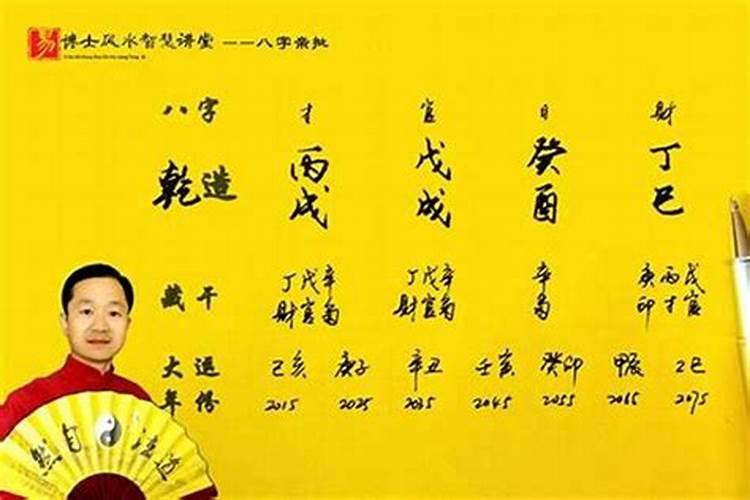 易 博士风水智慧讲堂 ——八字亲批
八字 才 官 日 财
乾造 丙戌 戊戌 癸酉 丁巳
藏干 丁戊辛 丁戊辛 辛 庚丙戊
财官枭 财官枭 枭 印才官
大运 己亥 庚子 辛丑 壬寅 癸卯 甲辰 乙巳
年份 2015 2025 2035 2045 2055 2065 2075
道法自然